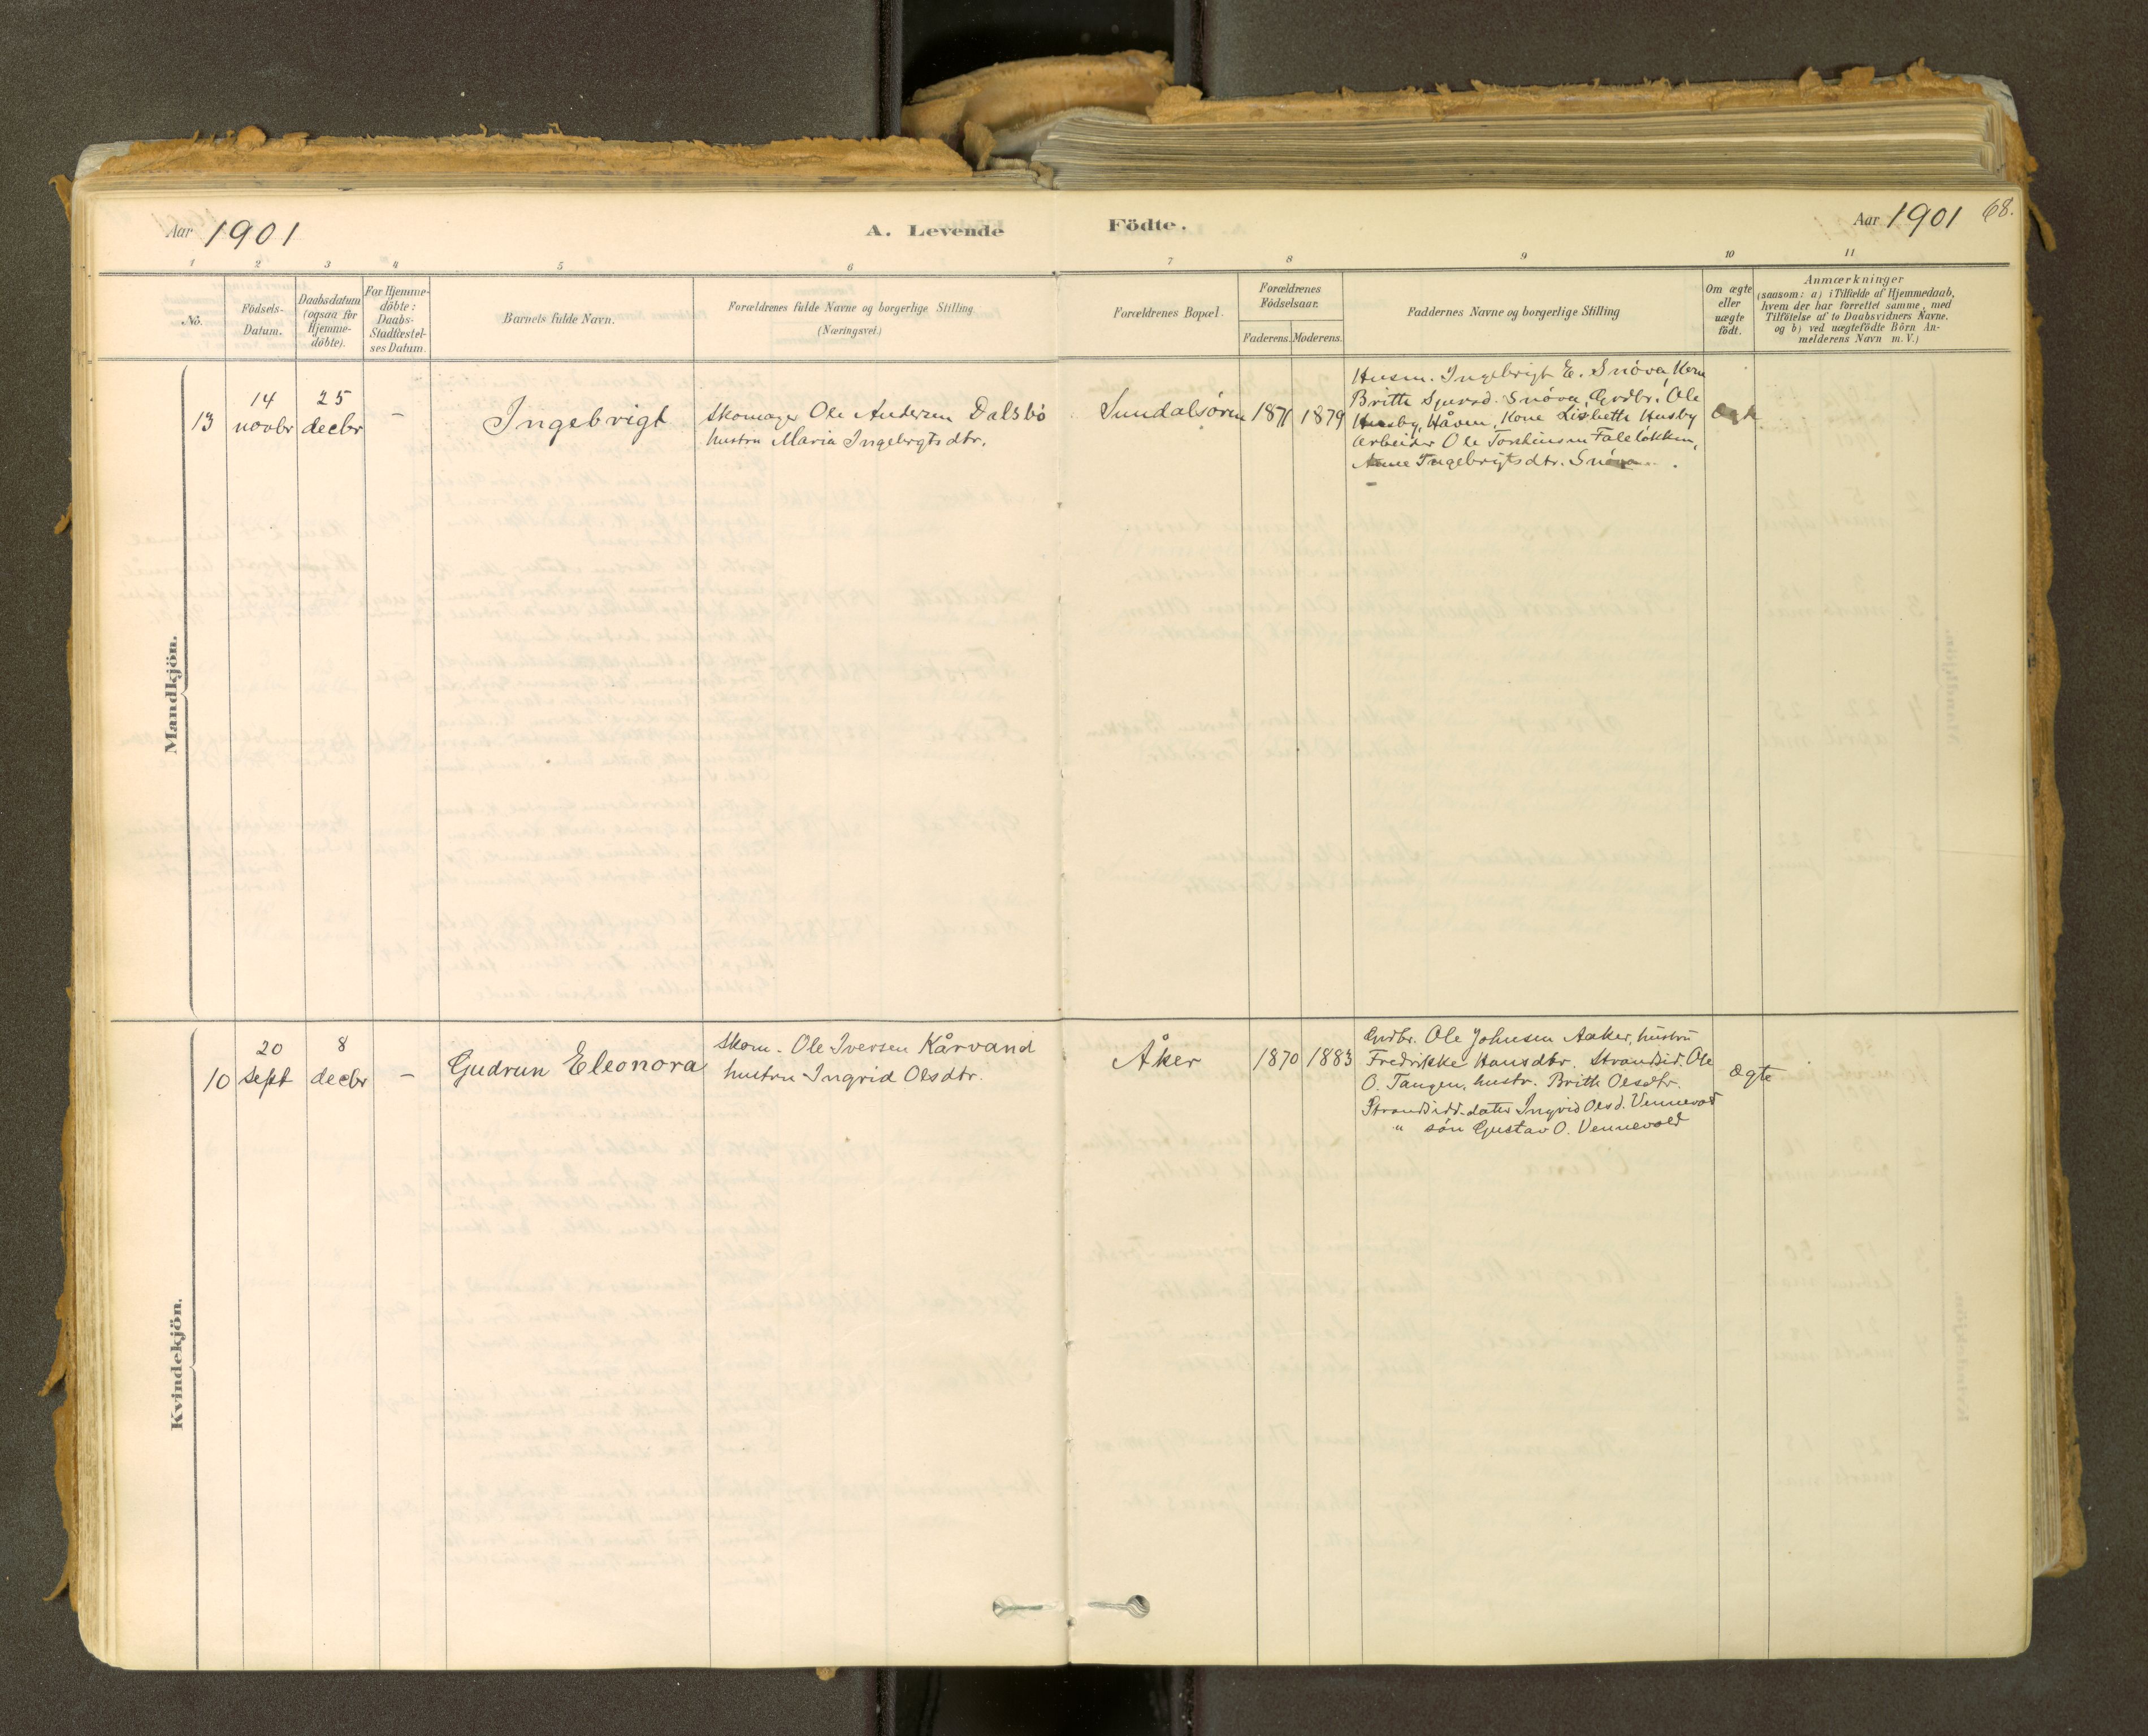 Aar 1901
A. Levende
Födte.
Aar 1901
68.
1 2 3 4 5 6 7 8 9 10 11
No.
Födsels-
Datum.
Daabsdatum
(ogsaa for
Hjemme-
döbte).
For Hjemme-
döbte:
Daabs-
Stadfæstel-
ses Datum.
Barnets fulde Navn.
Forældrenes fulde Navne og borgerlige Stilling
(Næringsvei.)
Forældrenes Bopæl.
Forældrenes
Födselsaar.
Faderens. Moderens.
Faddernes Navne og borgerlige Stilling
Om ægte
eller
uægte
födt.
Anmærkninger
(saasom: a) i Tilfælde af Hjemmedaab,
hvem der har forrettet samme, med
Tilföielse af to Daabsvidners Navne.
og b) ved uægtefödte Börn An-
melderens Navn m. V.)
Mandkjön.
13
14
novbr
25
decbr
-
Ingebrigt
Skomager Ole Andersen Dalsbö
hustru Maria Ingebrigtsdtr.
Sundalsøren
1871
1879
Husm. Ingebrigt E. Snöva, Kone
Brith Sjursd. Snöva, Grdbr. Ole
Husby, Håven, Kone Lisbeth Husby
Arbeider Ole Faleløkken,
Anne Ingebrigtsdtr. Snöva.
Ægte
Kvindekjön.
10
20
sept
8
decbr
-
Gudrun Eleonora
Skom. Ole Iversen Kårvand
hustru Ingrid Olsdtr.
Åker
1870
1883
Grdbr. Ole Johnsen Aaker, hustru
Fredrikke Hansdtr. Strandsid. Ole
O. Tangen, hustr. Brith Olsdtr.
Strandsidd. datter Ingrid Olsd. Vennevold
" sön Gustav O. Vennevold
Ægte